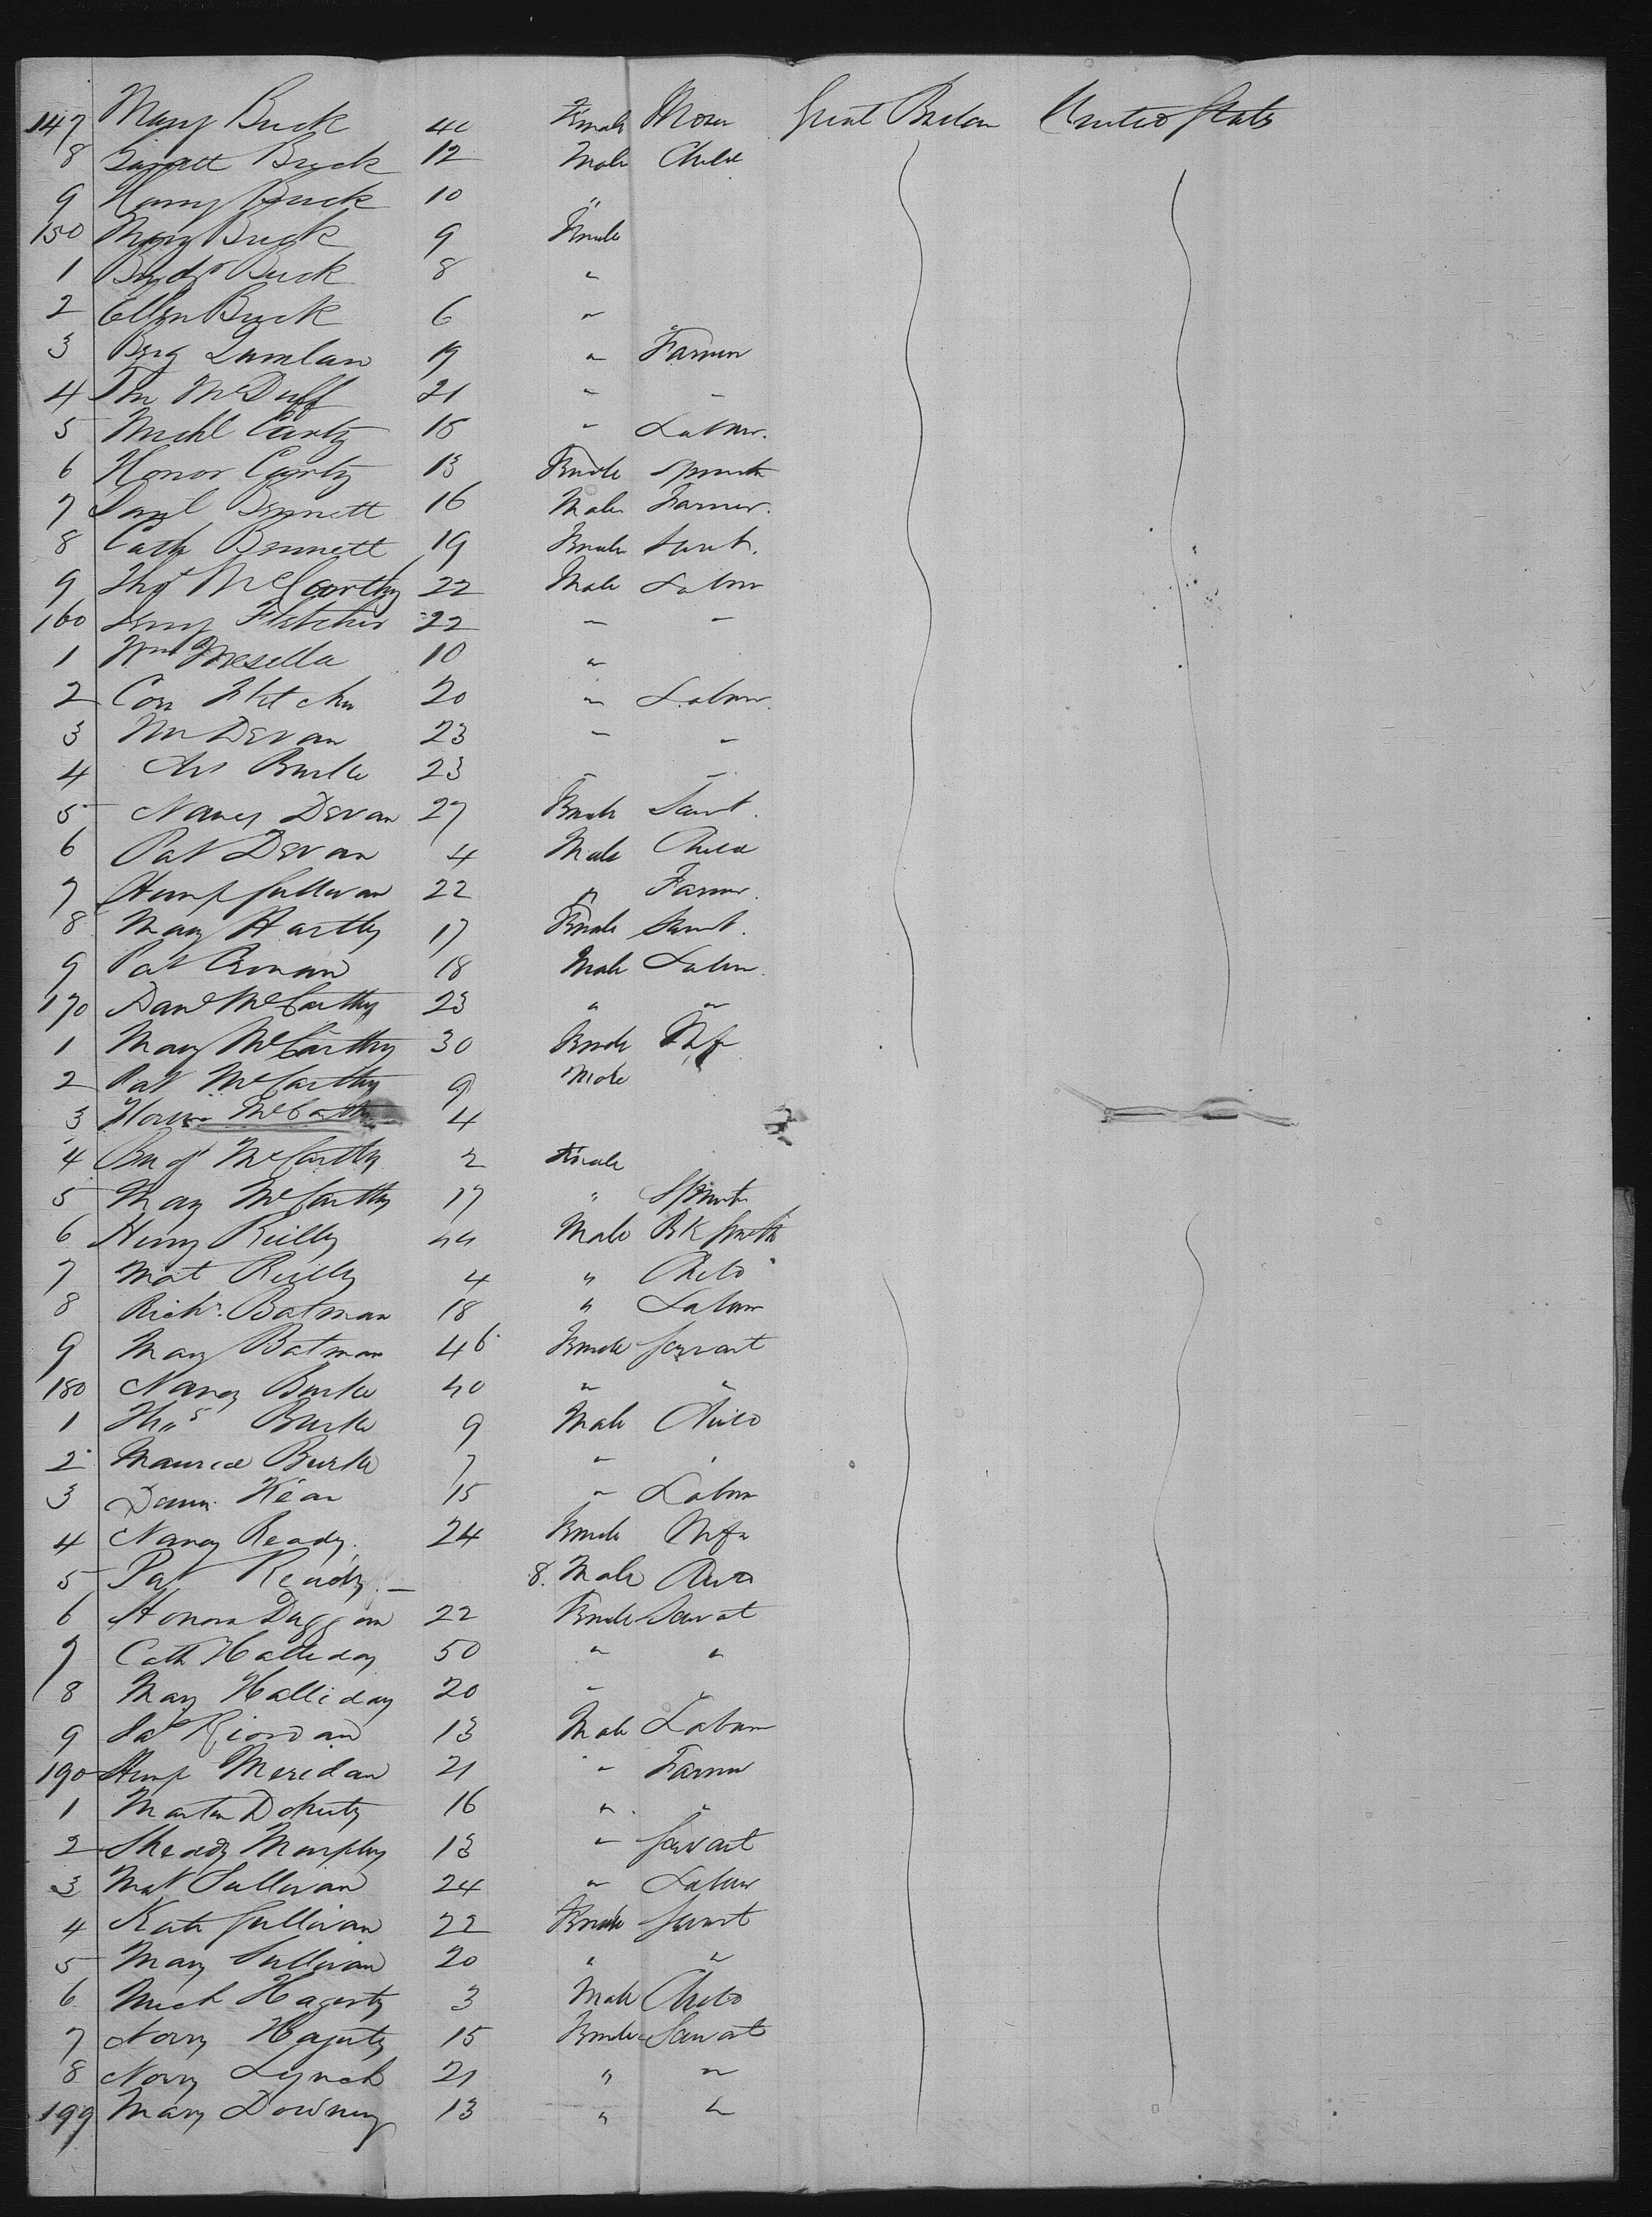 147 Mary Buck 40 Female Great Britain United States
8 Garrett Buck 12 Male Child
9 Buck 10 "
150 Mary Buck 9 Female
1 Bridgt Buck 8 "
2 Ellen Buck 6 "
3 19 " Farmer
4 McDuff 21 " "
5 Michl Carty 18 " Labour.
6 Honor Carty 13 Female Spinster
7 Danl Bennett 16 Male Farmer.
8 Cath Bennett 19 Female Servt.
9 Thos McCarthy 22 Male Labour
160 Fletcher 22 " "
1 Wm 10 "
2 Con Fletcher 20 " Labour.
3 Wm Devan 23 " "
4 Burke 23 " "
5 Nancy Devan 27 Female Servt.
6 Pat Devan 4 Male Child
7 Hump Sullivan 22 " Farmer.
8 Mary Hartly 17 Female Servt.
9 Pat Cronan 18 Male Labour.
170 Danl McCarthy 23 " "
1 Mary McCarthy 30 Female Wife
2 Pat McCarthy 9 Male
3 McCarthy 4
4 Bridgt McCarthy 2 Female
5 Mary McCarthy 17 " Spinster
6 Henry Reilly 44 Male Bk Smith
7 Mat Reilly 4 " Child
8 Richd. Batman 18 " Labour
9 Mary Batman 46 Female Servant
180 Nancy Burke 40 " "
1 Thos Burke 9 Male Child
2 Maurice Burke 7 " "
3 Kean 15 " Labour
4 Nancy Ready. 24 Female Wife
5 Pat Ready. — 8. Male Child
6 Honora Duggan 22 Female Servant
7 Cath Halliday 50 " "
8 Mary Halliday 20 " "
9 Riordan 13 Male Labour
190 Hump Meredan 21 " Farmer
1 Martin Doherty 16 " "
2 Murphy 13 " Servant
3 Mat Sullivan 24 " Labour
4 Kate Sullivan 22 Female Servant
5 Mary Sullivan 20 " "
6 Mich Hagerty 3 Male Child
7 Norry Hagerty 15 Female Servant
8 Norry Lynch 21 " "
199 Mary Downey 13 " "